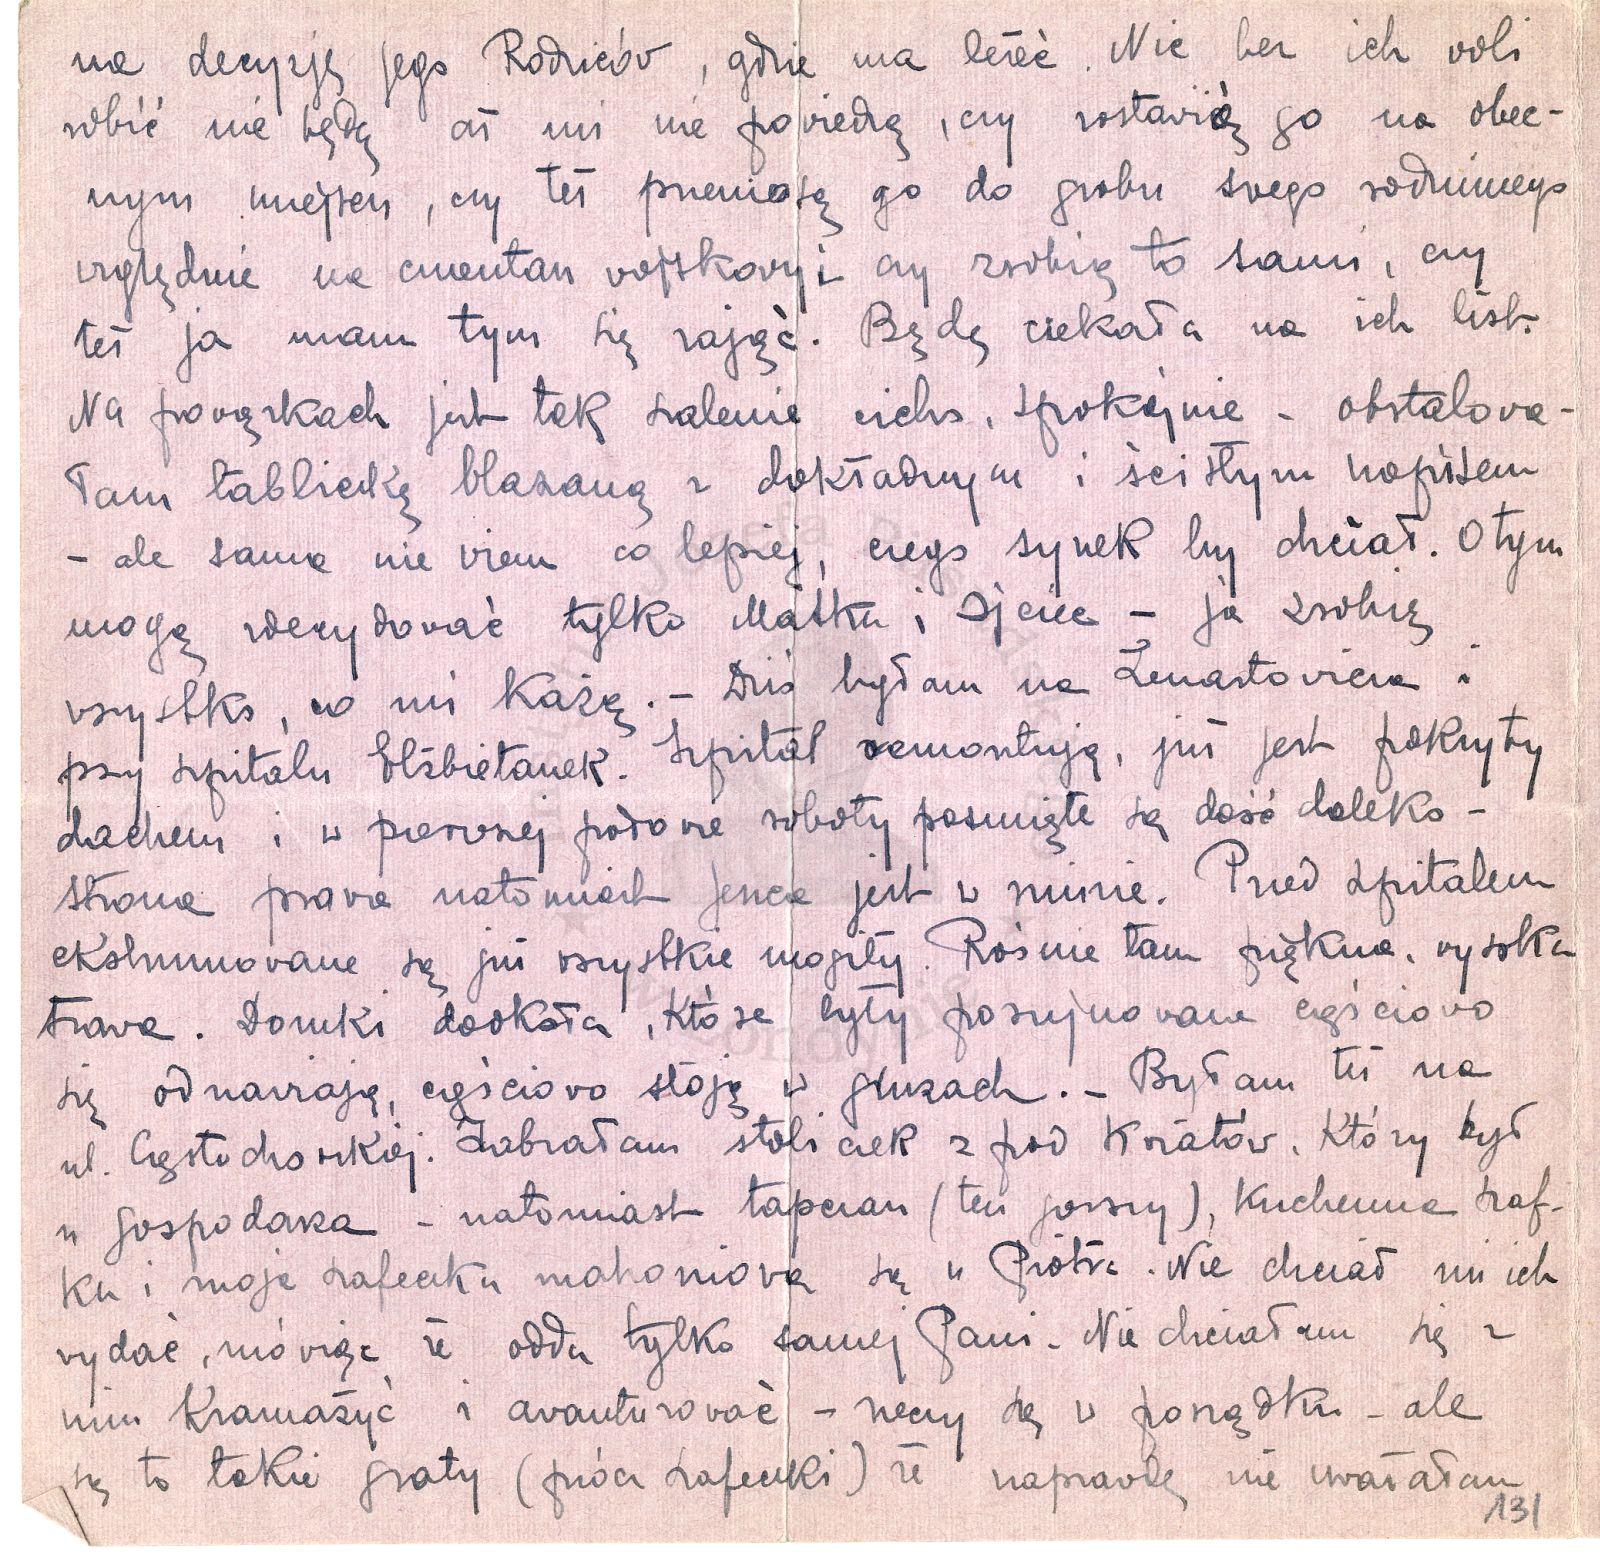 na decyzję jego Rodziców, gdzie ma leżeć. Nic bez ich woli
robić nie będę aż mi nie powiedzą, czy zostawią go na obec-
nym miejscu, czy też przeniosą go do grobu swego rodzinnego
względnie na cmentarz wojskowy i czy zrobią to sami, czy
też ja mam tym się zająć. Będę czekała na ich list.
Na Powązkach jest tak szalenie cicho, spokojnie - obstalowa-
łam tabliczkę blaszaną z dokładnym i ścisłym napisem
- ale sama nie wiem co lepiej, czego synek by chciał. O tym
mogą zdecydować tylko Matka i Ojciec - ja zrobię
wszystko, co mi każą. - Dziś byłam na Lenartowicza i
przy szpitalu Elżbietanek. Szpital remontują, już jest pokryty
dachem i w pierwszej połowie roboty posunięte są dość daleko -
strona prawa natomiast jeszcze jest w ruinie. Przed szpitalem
ekshumowane są już wszystkie mogiły. Rośnie tam piękna, wysoka
trawa. Domki dookoła, które były porujnowane częściowo
się odnawiają, częściowo stoją w gruzach. - Byłam też na
ul. Częstochowskiej. Zabrałam stoliczek z pod kwiatów, który był
u gospodarza - natomiast tapczan (ten gorszy), kuchenna szaf-
ka i moja szafeczka mahoniowa są u Piotra. Nie chciał mi ich
wydać, mówiąc że odda tylko samej Pani. Nie chciałam się z
nim kramażyć i awanturować - rzeczy są w porządku - ale
są to takie graty (prócz szafeczki) że naprawdę nie uważałam
131
Józefa Piłsudskiego
w Londynie